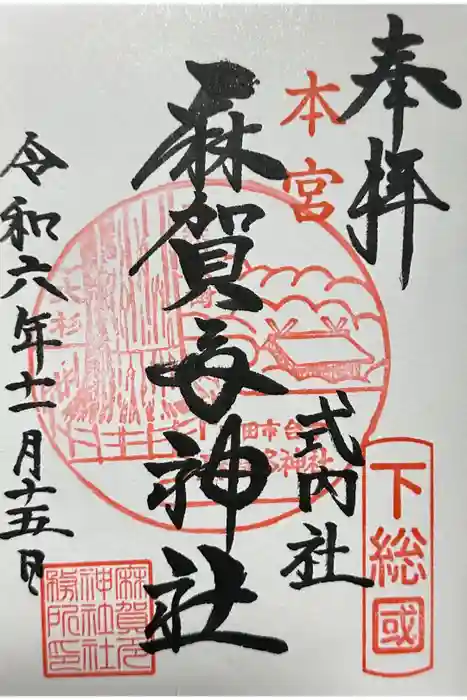 奉拝
本宮
式内社
下総國
麻賀多神社
令和六年十一月十五日
大杉
田市台
神社
麻賀多
神社社
務所印